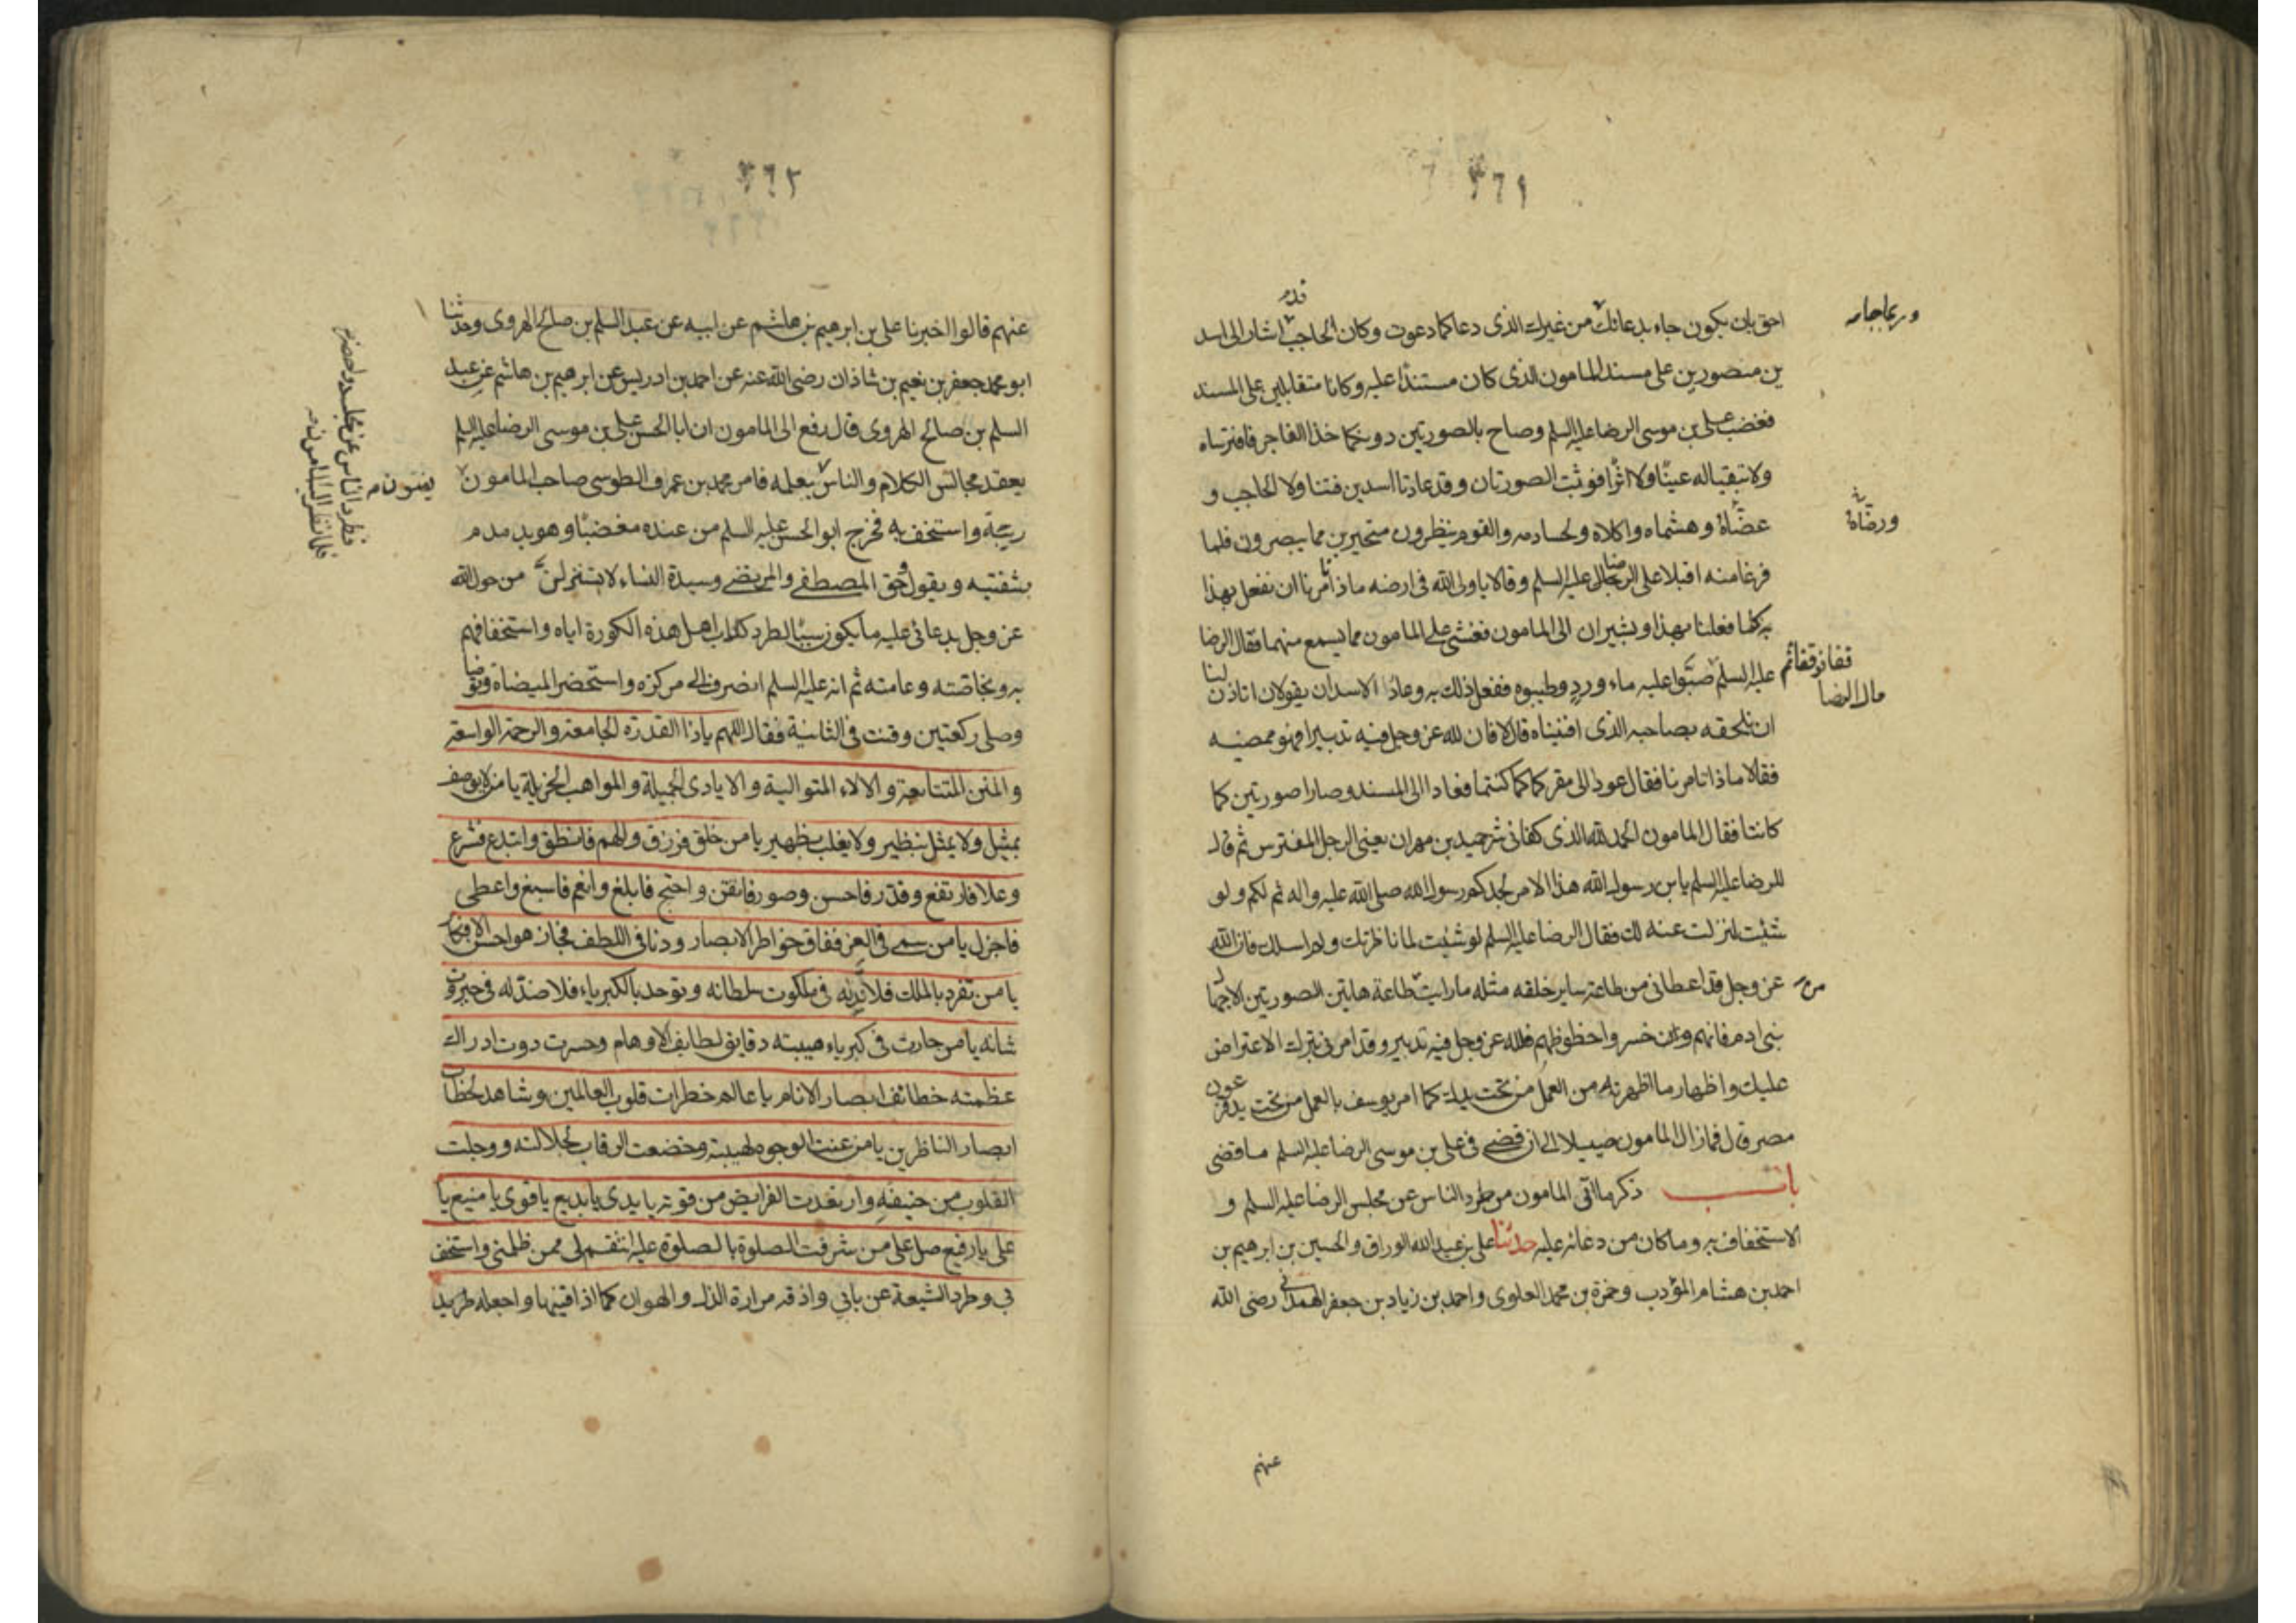 ٣٦١
احق بان يكون جاء بدعائك من غيرك الذى دعا كما دعوت وكان الحاجب قد اشار الى اسد
ين منصورين على مسند المامون الذى كان مستندا عليه وكانا متقابلين على المسند
فغضب على بن موسى الرضا عليه السلم وصاح بالصورتين دونكما خذا الفاجر فافترساه
ولا تبقيا له عينًا ولا اثرًا فوثبت الصورتان وقد عادتا اسدين فتناولا الحاجب و
عضّاه وهشماه واكلاه ولحسا دمه والقوم ينظرون متحيرين مما يبصرون فلما
فرغا منه اقبلا على الرضا عليه السلم وقالا يا ولى الله فى ارضه ماذا تأمرنا ان نفعل بهذا
به كما فعلنا بهذا ويشيران الى المامون فغشى على المامون مما يسمع منهما فقال الرضا
عليه السلم صبّوا عليه ماء ورد وطيبوه ففعل ذلك به وعاد الاسدان يقولان اتاذن لنا
ان نلحقه بصاحبه الذى افنيناه قال لا فان لله عز وجل فيه تدبيرا هو ممضيه
فقالا ماذا تامرنا فقال عودا الى مقركما كما كنتما فعادا الى المسند وصارا صورتين كما
كانتا فقال المامون الحمد لله الذى كفانى شر حميد بن مهران يعنى الرجل المفترس ثم قال
للرضا عليه السلم يابن رسول الله هذا الامر لجدكم رسول الله صلى الله عليه واله ثم لكم ولو
شئت لنزلت عنه لك فقال الرضا عليه السلم لو شئت لما ناظرتك ولم اسالك فان الله
عز وجل قد اعطانى من طاعة ساير خلقه مثل ما رايت من طاعة هاتين الصورتين الا جهال
بنى ادم فانهم وان خسروا حظوظهم فلله عز وجل فيه تدبير وقد امرنى بترك الاعتراض
عليك واظهار ما اظهرته من العمل من تحت يدك كما امر يوسف بالعمل من تحت يد فرعون
مصر قال فما زال المامون ضييلا الى ان قضى فى على بن موسى الرضا عليه السلم ما قضى
باب ذكر ما اتى المامون من طرد الناس عن مجلس الرضا عليه السلم و
الاستخفاف به وما كان من دعائه عليه حدثنا على بن عبد الله الوراق والحسين بن ابرهيم بن
احمد بن هشام المؤدب وحمزة بن محمد العلوى واحمد بن زياد بن جعفر الهمدانى رضى الله
عنهم
ورضّاه
مال الرضا
٣٦٢
عنهم قالوا اخبرنا على بن ابرهيم بن هاشم عن ابيه عن عبد السلم بن صالح الهروى وحدثنا
ابو محمد جعفر بن نعيم بن شاذان رضى الله عنه عن احمد بن ادريس عن ابرهيم بن هاشم عن عبد
السلم بن صالح الهروى قال رفع الى المامون ان ابا الحسن على بن موسى الرضا عليه السلم
يعقد مجالس الكلام والناس بعلمه فامر محمد بن عمرو الطوسى صاحب المامون
واستخف به فخرج ابو الحسن عليه السلم من عنده مغضبًا وهو يدمدم
بشفتيه ويقول وحق المصطفى والمرتضى وسيدة النساء لاستنزلن من حول الله
عز وجل بدعائى عليه ما يكون سببا لطرد كلاب اهل هذه الكورة اياه واستخفافهم
به وبخاصته وعامته ثم انه عليه السلم انصرف الى مركزه واستحضر الميضاة وتوضا
وصلى ركعتين وقنت فى الثانية فقال اللهم يا ذا القدرة الجامعة والرحمة الواسعة
والمنن المتتابعة والالاء المتوالية والايادى الجميلة والمواهب الجزيلة يا من لا يوصف
بمثيل ولا يمثل بنظير ولا يغلب بظهير يا من خلق فرزق والهم فانطق وابتدع فشرع
وعلا فارتفع وقدّر فاحسن وصور فاتقن واحتج فابلغ وانعم فاسبغ واعطى
فاجزل يا من سمى فى العز ففاق خواطر الابصار ودنا فى اللطف فجاز هواجس الافكار
يا من تفرد بالملك فلا ندّ له فى ملكوت سلطانه وتوحد بالكبرياء فلا ضدّ له فى جبروت
شانه يا من حارت فى كبرياء هيبته دقايق لطايف الاوهام وحسرت دون ادراك
عظمته خطائف ابصار الانام يا عالم خطرات قلوب العالمين وشاهد لحظات
ابصار الناظرين يا من عنت الوجوه لهيبته وخضعت الرقاب لجلالته ووجلت
القلوب من خيفته وارتعدت الفرايص من فرقه يا بدى يا بديع يا قوى يا منيع يا
على يا رفيع صل على من شرفت الصلوة بالصلوة عليه انتقم لى ممن ظلمنى واستخف
بى وطرد الشيعة عن بابى واذقه مرارة الذل والهوان كما اذاقنيها واجعله طريد
يفتنون
فطرد الناس عن مجلسه واحضره
فلما نظر اليه المامون